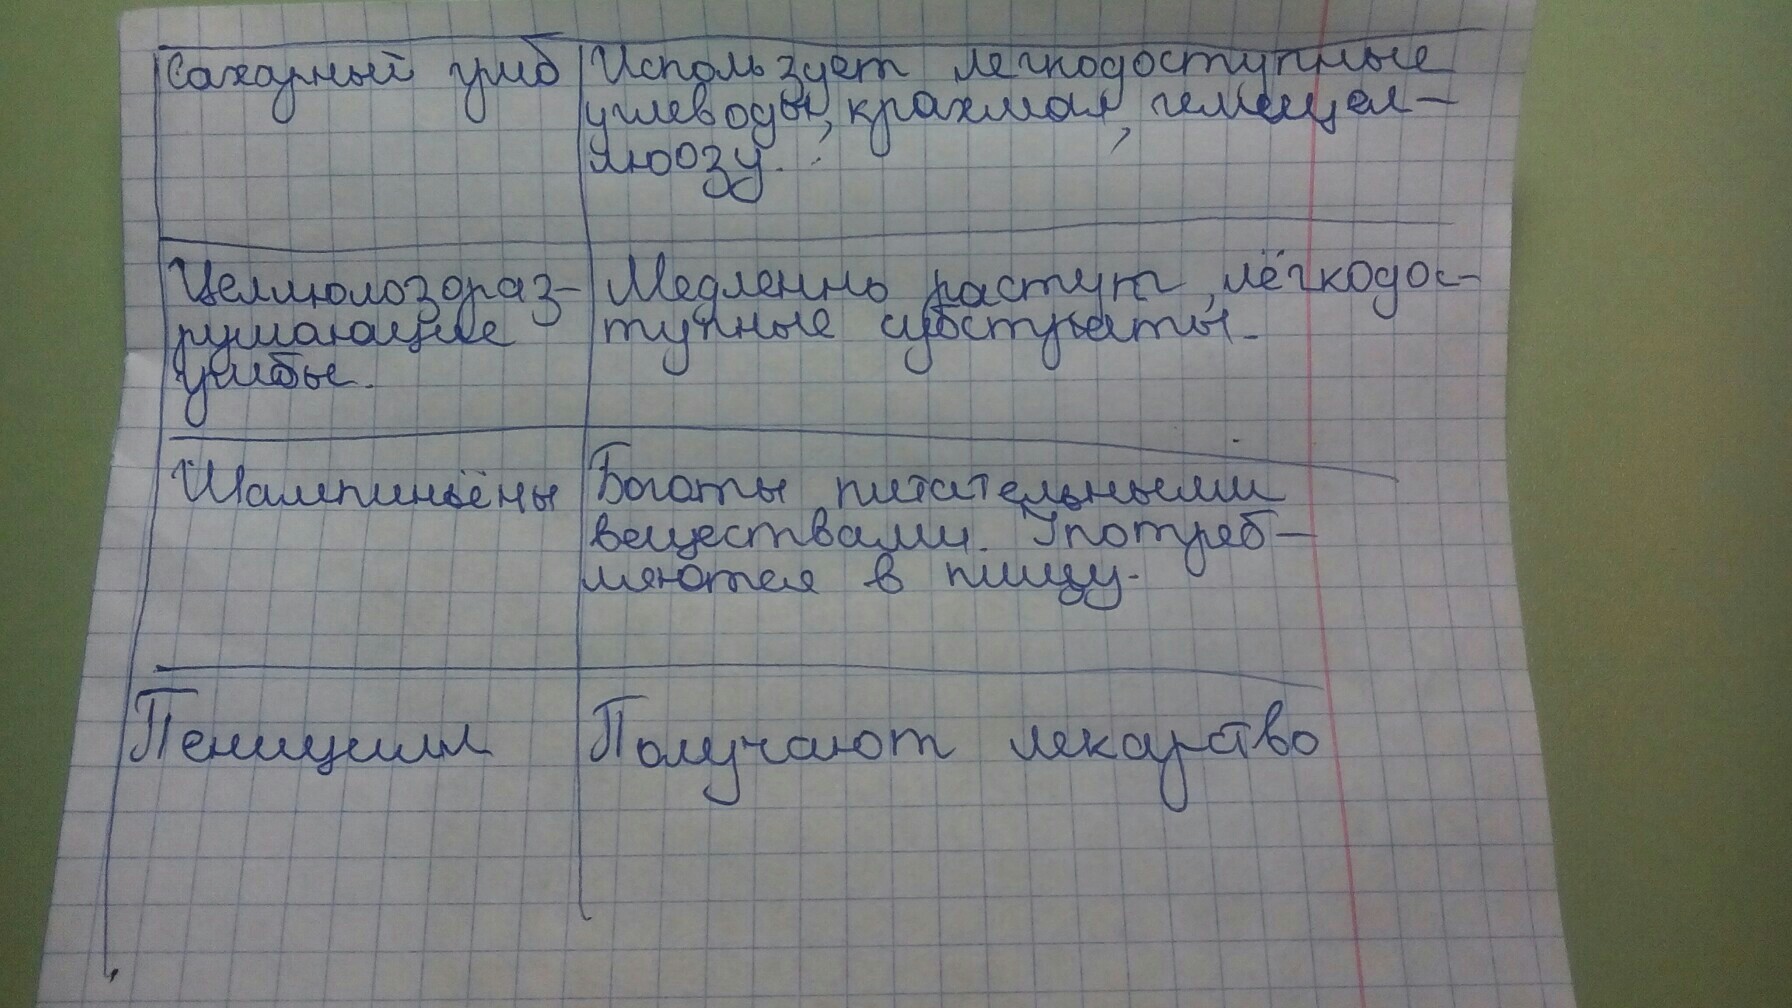 Сахарный гриб
Использует легкодоступные
углеводы, крахмал, гемицел-
люозу.
Целлюлозораз-
рушающие
грибы.
Медленно растут, лёгкодос-
тупные субстраты.
Шампиньёны
Богаты питательными
веществами. Употреб-
ляются в пищу.
Пеницилл
Получают лекарство